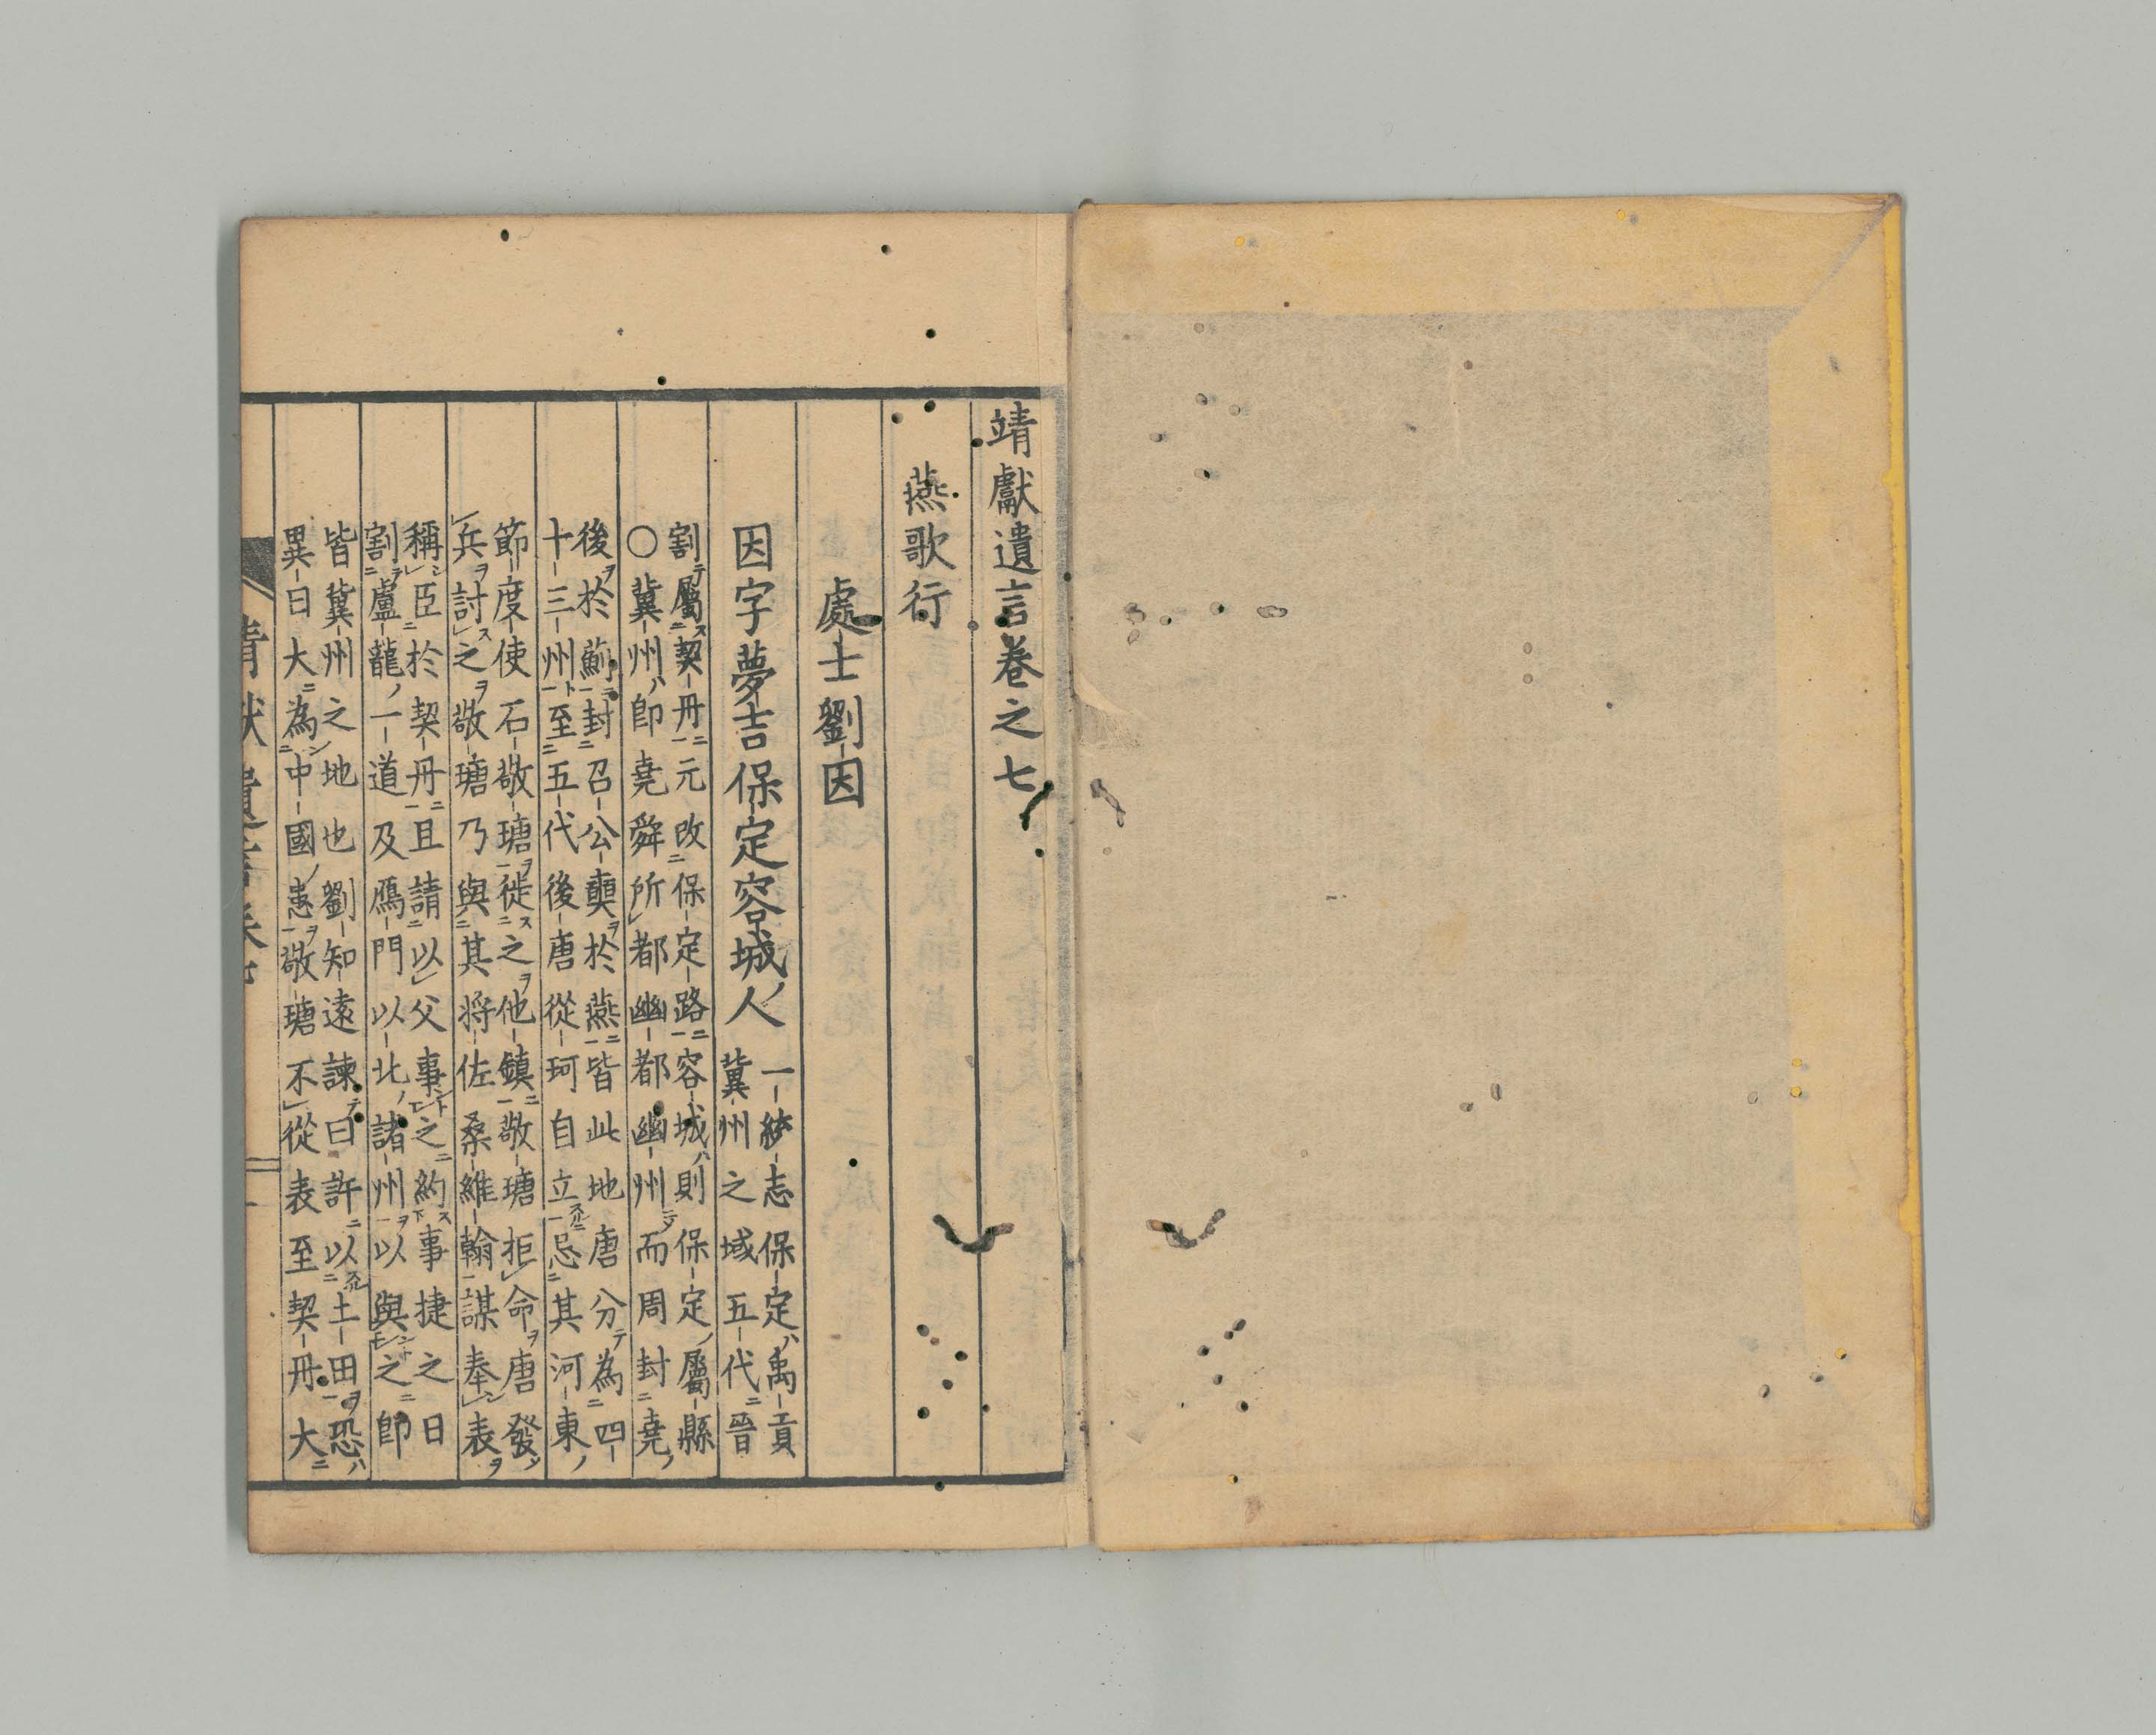 靖獻遺言卷之七
燕歌行
處士劉因
因字夢吉保定容城人
一統志保定禹貢
冀州之域五代晉
割屬契丹元改保定路容城則保定屬縣
〇冀州即堯舜所都幽都幽州而周封堯
後於薊封召公奭於燕皆此地唐分為四
十三州至五代後唐從珂自立忌其河東
節度使石敬瑭徙之他鎮敬瑭拒命唐發
兵討之敬瑭乃與其將佐桑維翰謀奉表
稱臣於契丹且請以父事之約事捷之日
割盧龍一道及鴈門以北諸州以與之即
皆冀州之地也劉知遠諫曰許以土田恐
異日大為中國患敬瑭不從表至契丹大